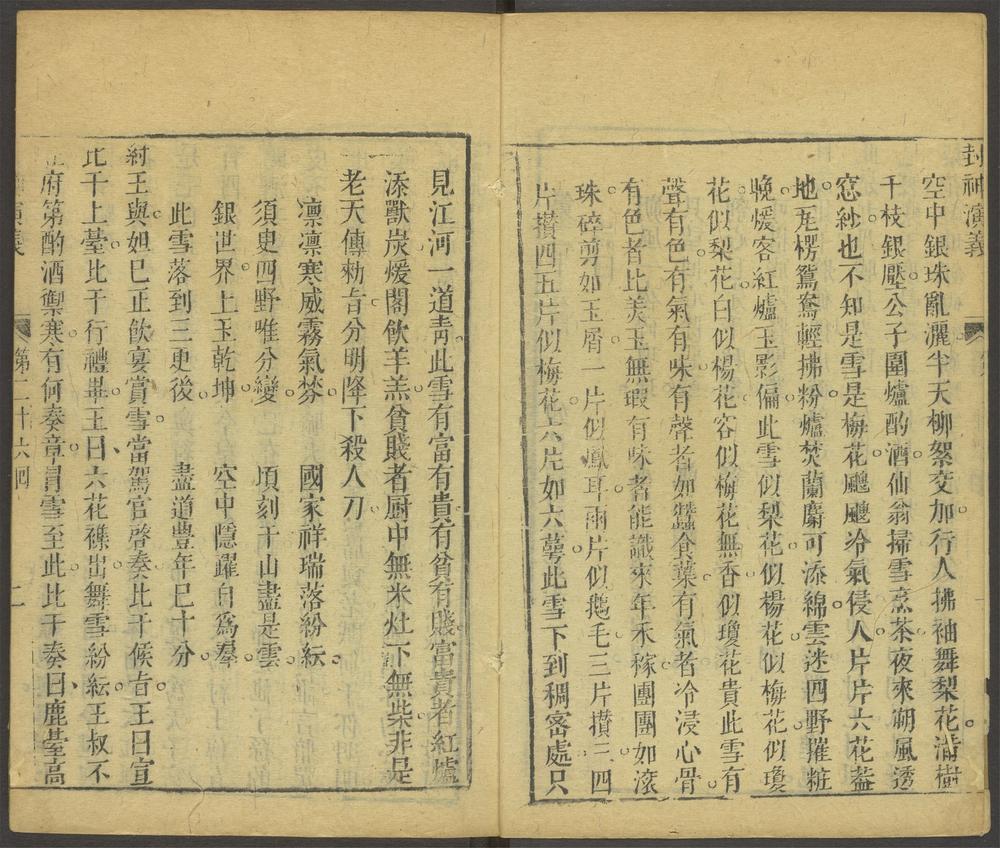 封神演義
空中銀珠亂灑半天柳絮交加行人拂袖舞梨花滿樹
千枝銀壓公子圍爐酌酒仙翁掃雪烹茶夜來朔風透
窓紗也不知是雪是梅花颼颼冷氣侵人片片六花蓋
地瓦楞鴛鴦輕拂粉爐焚蘭麝可添綿雲迷四野摧粧
晚煖客紅爐玉影偏此雪似梨花似楊花似梅花似瓊
花似梨花白似楊花容似梅花無香似瓊花貴此雪有
聲有色有氣有味有聲者如蠶食葉有氣者冷浸心骨
有色者比美玉無瑕有味者能識來年禾稼團團如滚
珠碎剪如玉屑一片似鳳耳兩片似鵝毛三片攅三四
片攅四五片似梅花六片如六萼此雪下到稠密處只
見江河一道靑此雪有富有貴有貧有賤富貴者紅爐
添獸炭煖閣飲羊羔貧賤者厨中無米灶下無柴非是
老天傳勑旨分明降下殺人刀
凛凛寒威霧氣棼 國家祥瑞落紛紜
須臾四野唯分變 頃刻千山盡是雲
銀世界上玉乾坤 空中隱躍自爲羣
此雪落到三更後 盡道豐年已十分
紂王與妲巳正飲宴賞雪當駕官啓奏比干候旨王曰宣
比干上臺比干行禮畢王曰六花襍出舞雪紛紜王叔不
府第酌酒禦寒有何奏章冒雪至此比干奏曰鹿臺高
第二十六回 二